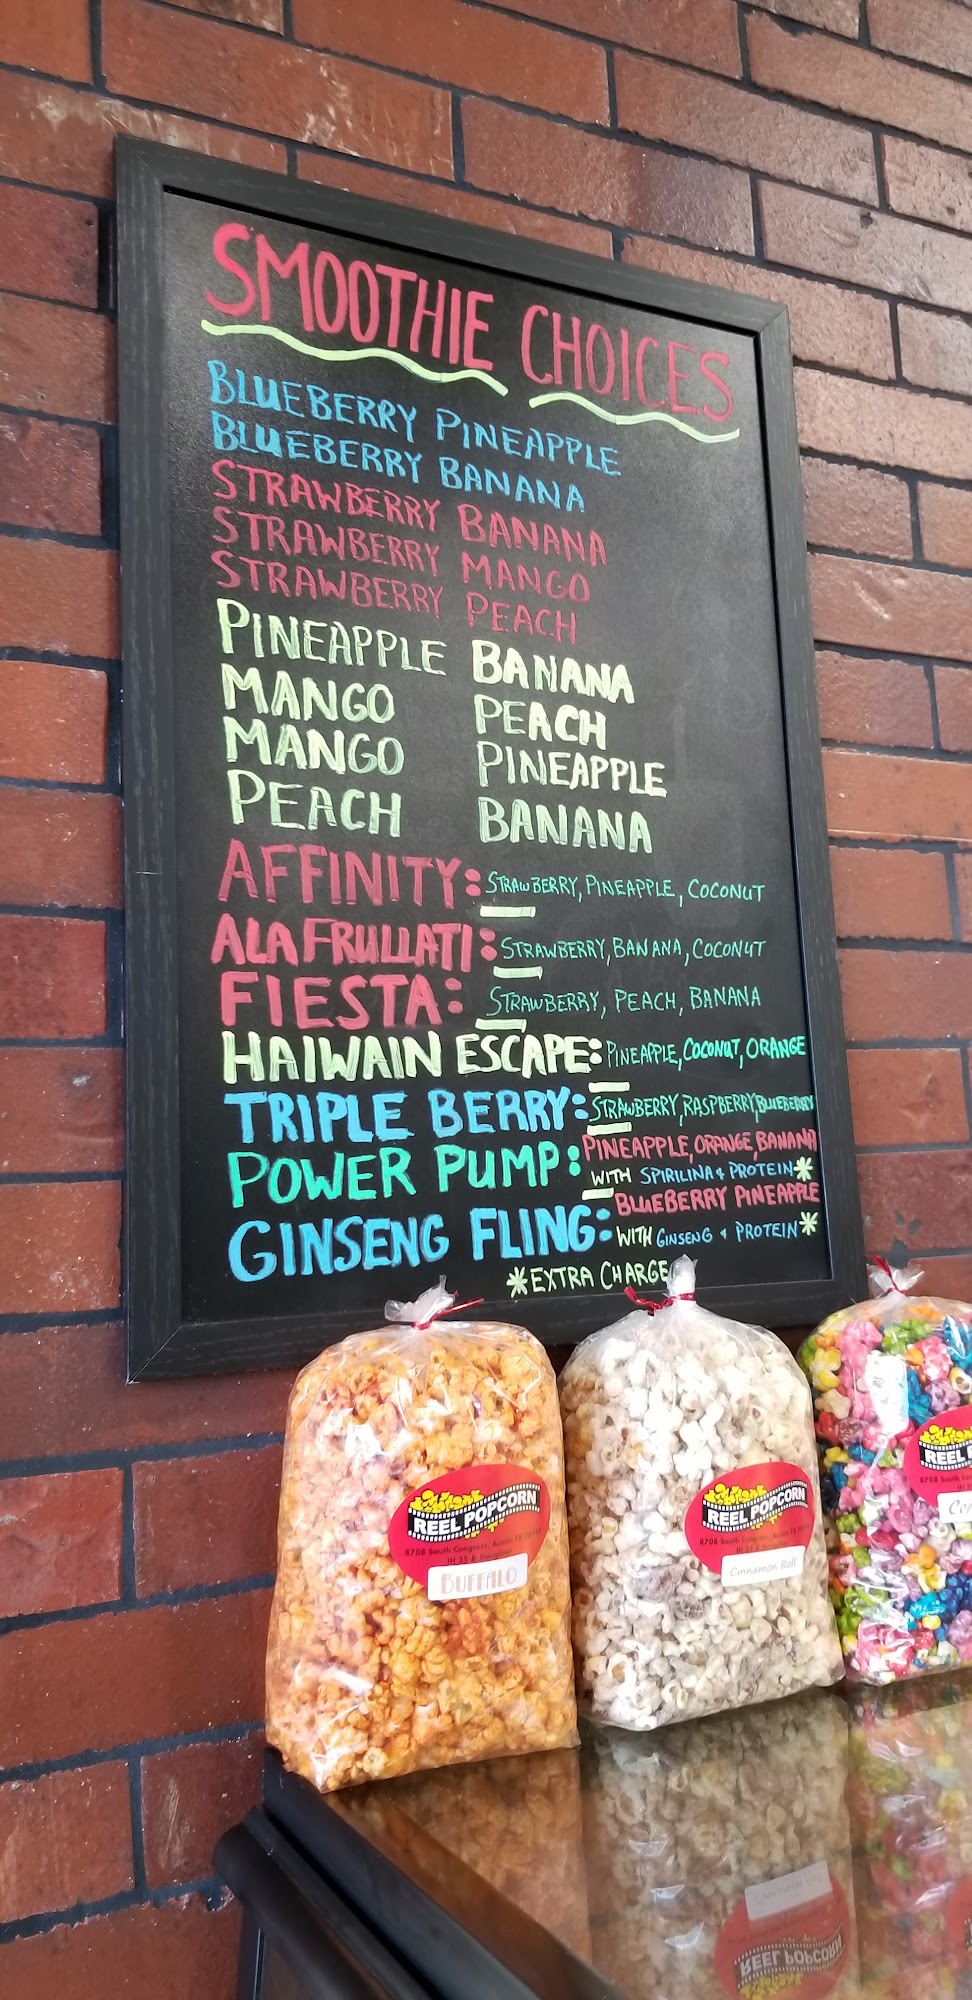 SMOOTHIE CHOICES
BLUEBERRY PINEAPPLE
BLUEBERRY BANANA
STRAWBERRY BANANA
STRAWBERRY MANGO
STRAWBERRY PEACH
PINEAPPLE BANANA
MANGO PEACH
MANGO PINEAPPLE
PEACH BANANA
AFFINITY: STRAWBERRY, PINEAPPLE, COCONUT
ALA FRULLATI: STRAWBERRY, BANANA, COCONUT
FIESTA: STRAWBERRY, PEACH, BANANA
HAIWAIN ESCAPE: PINEAPPLE, COCONUT, ORANGE
TRIPLE BERRY: STRAWBERRY, RASPBERRY, BLUEBERRY
POWER PUMP: PINEAPPLE, ORANGE, BANANA
WITH SPIRILINA & PROTEIN*
GINSENG FLING: BLUEBERRY PINEAPPLE
WITH GINSENG & PROTEIN*
*EXTRA CHARGE
REEL POPCORN
8708 South Congress, Austin TX 78745
IH 35 & Slaughter
BUFFALO
REEL POPCORN
8708 South Congress, Austin TX
IH 35 & Slaughter
Cinnamon Roll
REEL
8708 South